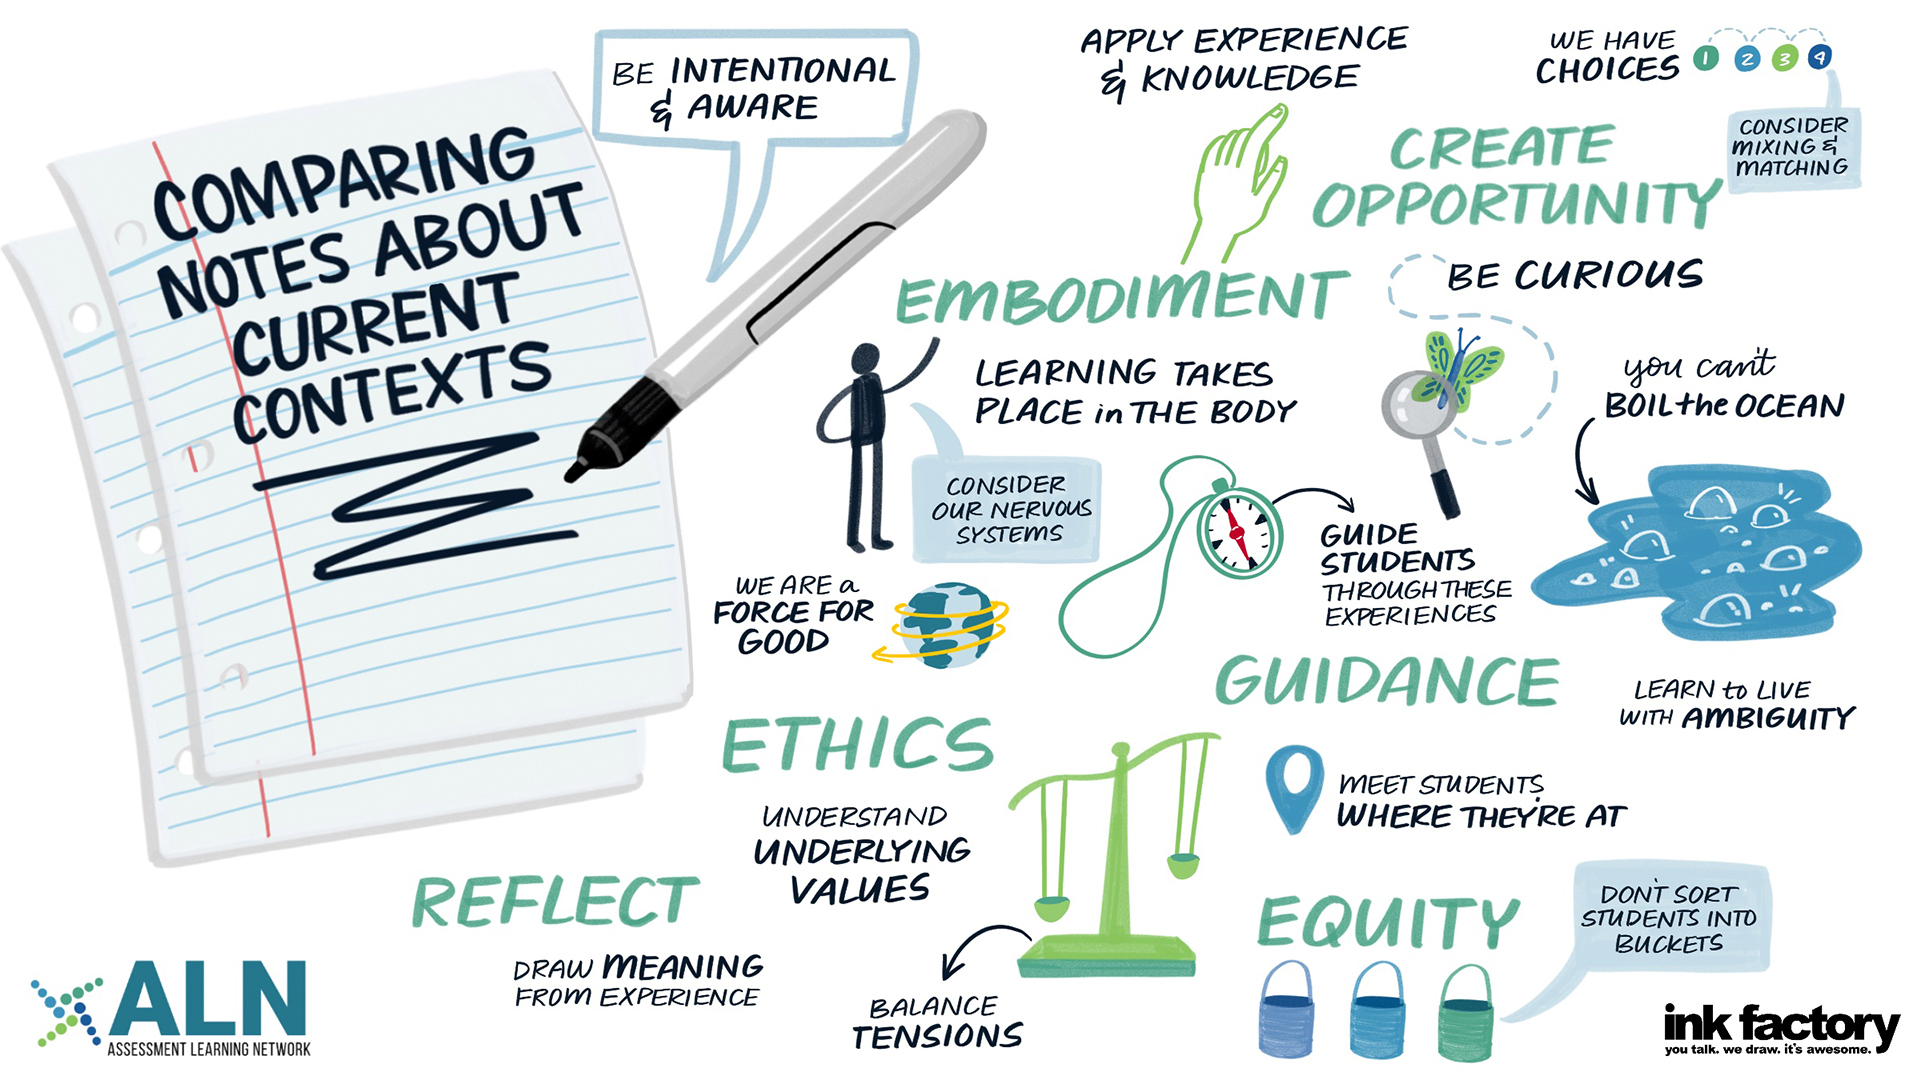 COMPARING
NOTES ABOUT
CURRENT
CONTEXTS
BE INTENTIONAL
& AWARE
APPLY EXPERIENCE
& KNOWLEDGE
WE HAVE
CHOICES
1 2 3 4
CONSIDER
MIXING &
MATCHING
CREATE
OPPORTUNITY
EMBODIMENT
LEARNING TAKES
PLACE in THE BODY
CONSIDER
OUR NERVOUS
SYSTEMS
BE CURIOUS
you can't
BOIL the OCEAN
GUIDE
STUDENTS
THROUGH THESE
EXPERIENCES
WE ARE a
FORCE FOR
GOOD
GUIDANCE
LEARN to LIVE
WITH AMBIGUITY
MEET STUDENTS
WHERE THEY'RE AT
ETHICS
UNDERSTAND
UNDERLYING
VALUES
BALANCE
TENSIONS
REFLECT
DRAW MEANING
FROM EXPERIENCE
EQUITY
DON'T SORT
STUDENTS INTO
BUCKETS
ALN
ASSESSMENT LEARNING NETWORK
ink factory
you talk. we draw. it's awesome.